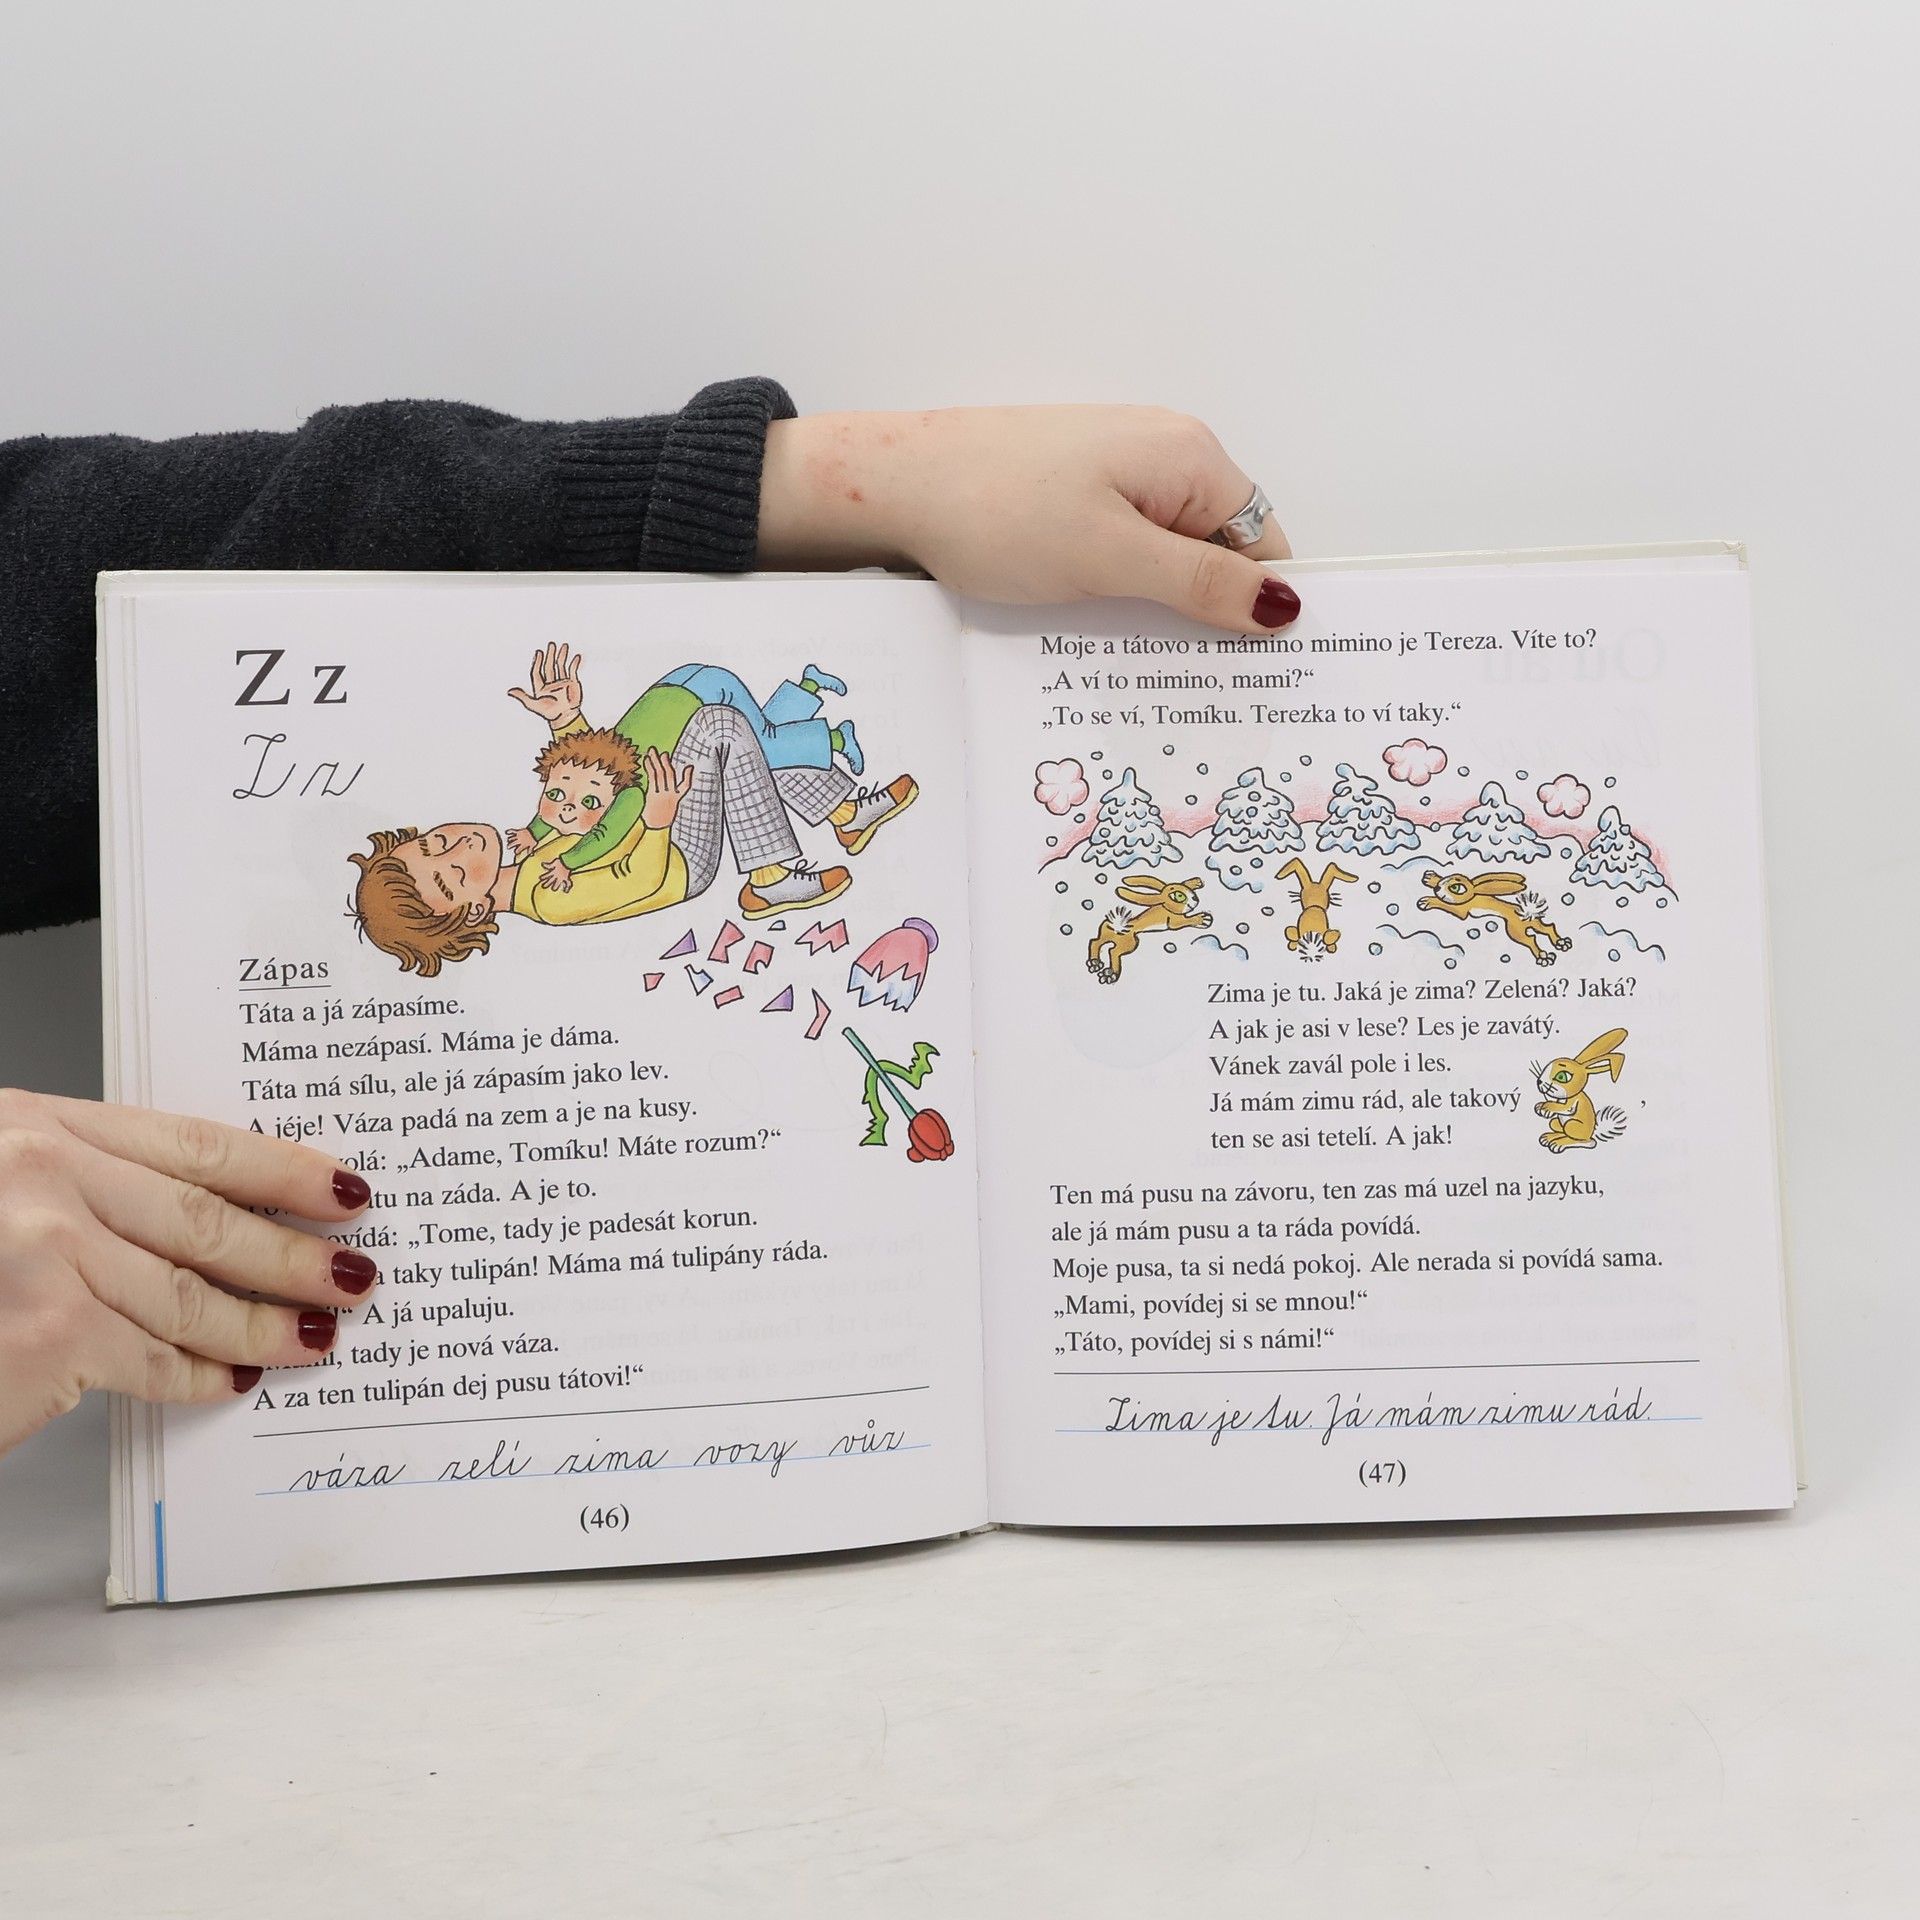 Z z
Z z
Zápas
Táta a já zápasíme.
Máma nezápasí. Máma je dáma.
Táta má sílu, ale já zápasím jako lev.
A jéje! Váza padá na zem a je na kusy.
„Adame, Tomíku! Máte rozum?“
na záda. A je to.
„Tome, tady je padesát korun.
a taky tulipán! Máma má tulipány ráda.
A já upaluju.
tady je nová váza.
A za ten tulipán dej pusu tátovi!“
váza zelí zima vozy vůz
(46)
Moje a tátovo a mámino mimino je Tereza. Víte to?
„A ví to mimino, mami?“
„To se ví, Tomíku. Terezka to ví taky.“
Zima je tu. Jaká je zima? Zelená? Jaká?
A jak je asi v lese? Les je zavátý.
Vánek zavál pole i les.
Já mám zimu rád, ale takový ,
ten se asi tetelí. A jak!
Ten má pusu na závoru, ten zas má uzel na jazyku,
ale já mám pusu a ta ráda povídá.
Moje pusa, ta si nedá pokoj. Ale nerada si povídá sama.
„Mami, povídej si se mnou!“
„Táto, povídej si s námi!“
Zima je tu. Já mám zimu rád.
(47)